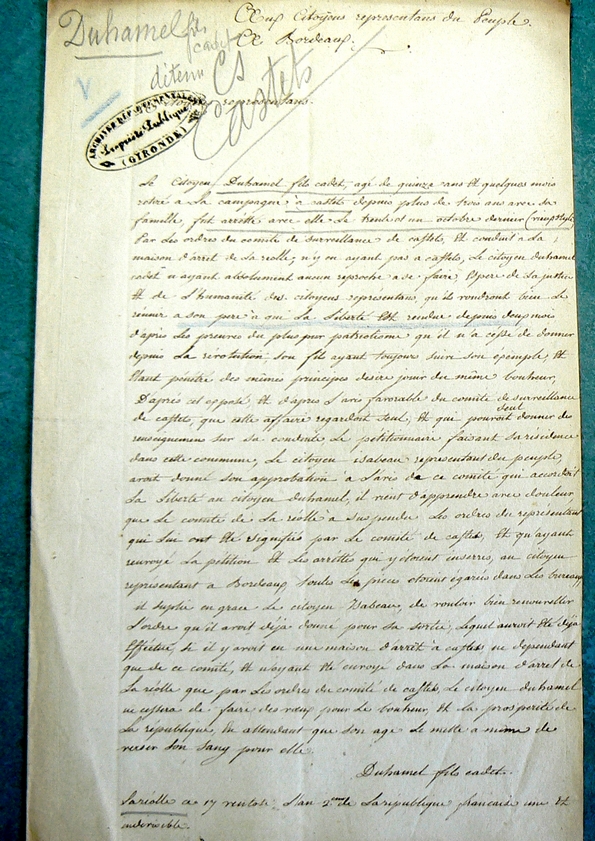 Duhamel fils
cadet
détenu
Castets
Aux Citoyens représentans du Peuple.
A Bordeaux.
Citoyens représentans.
ARCHIVES DÉPARTEMENTALES
Propriété Publique
(GIRONDE)
Le Citoyen Duhamel fils cadet, agé de quinze ans Et quelques mois
retiré a La Campagne a castets depuis plus de trois ans avec sa
famille, fut arretté avec elle Le trente et un octobre dernier (vieux style)
Par Les ordres du comité de surveillance de castets, Et conduit a La
maison d'arret de La réole, n'y en ayant pas a castets, Le citoyen duhamel
cadet n'ayant absolument aucun reproche a se faire, Espere de La justice
Et de L'humanité des citoyens représentans, qu'ils voudront bien Le
réunir a son pere a qui La Liberté Est rendue depuis deux mois
d'après Les preuves du plus pur patriotisme qu'il n'a cessé de donner
depuis La revolution. son fils ayant toujours suivi son exemple, Et
Etant pénétré des mêmes principes desire jouir du même bonheur,
D'après cet exposé, Et d'après L'avis favorable du comité de surveillance
de castets, que cette affaire regardoit seul, Et qui pouvoit seul donner des
renseignemens sur sa conduite, Le pétitionnaire faisant sa résidence
dans cette commune, Le citoyen isabeau représentant du peuple,
avoit donné son approbation a L'avis de ce comité qui accordoit
La Liberté au citoyen duhamel, il vient d'apprendre avec douleur
que Le comité de La réolle a suspendu Les ordres du représentant
qui Lui ont Eté signifiés par Le comité de castets, Et qu'ayant
renvoyé La pétition Et Les arrettés qui y étoient inserrés, au citoyen
représentant a Bordeaux toutes Les pieces étoient égarées dans Les bureaux
il suplie en grace Le citoyen Isabeau, de vouloir bien renouveller
L'ordre qu'il avoit déjà donné pour sa sortie, Lequel auroit Eté déjà
Effectué, si il y avoit eu une maison d'arrêt a castets ne dependant
que de ce comité, Et n'ayant Eté envoyé dans La maison d'arret de
La réolle que par Les ordres du comité de castets, Le citoyen duhamel
ne cessera de faire des vœux pour Le bonheur, Et La prosperité de
La république, En attendant que son age Le mette a même de
verser son sang pour elle.
Duhamel fils cadet.
La réolle ce 17 ventose L'an 2me de La république française une Et
indivisible.